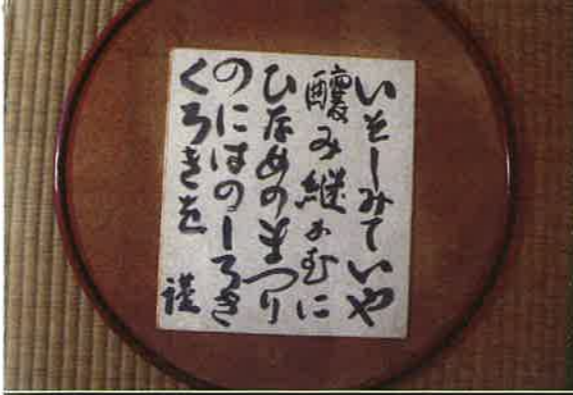 いそしみていや
醸み継かむに
ひなめのまつり
のにはのしろき
くろきを 謹